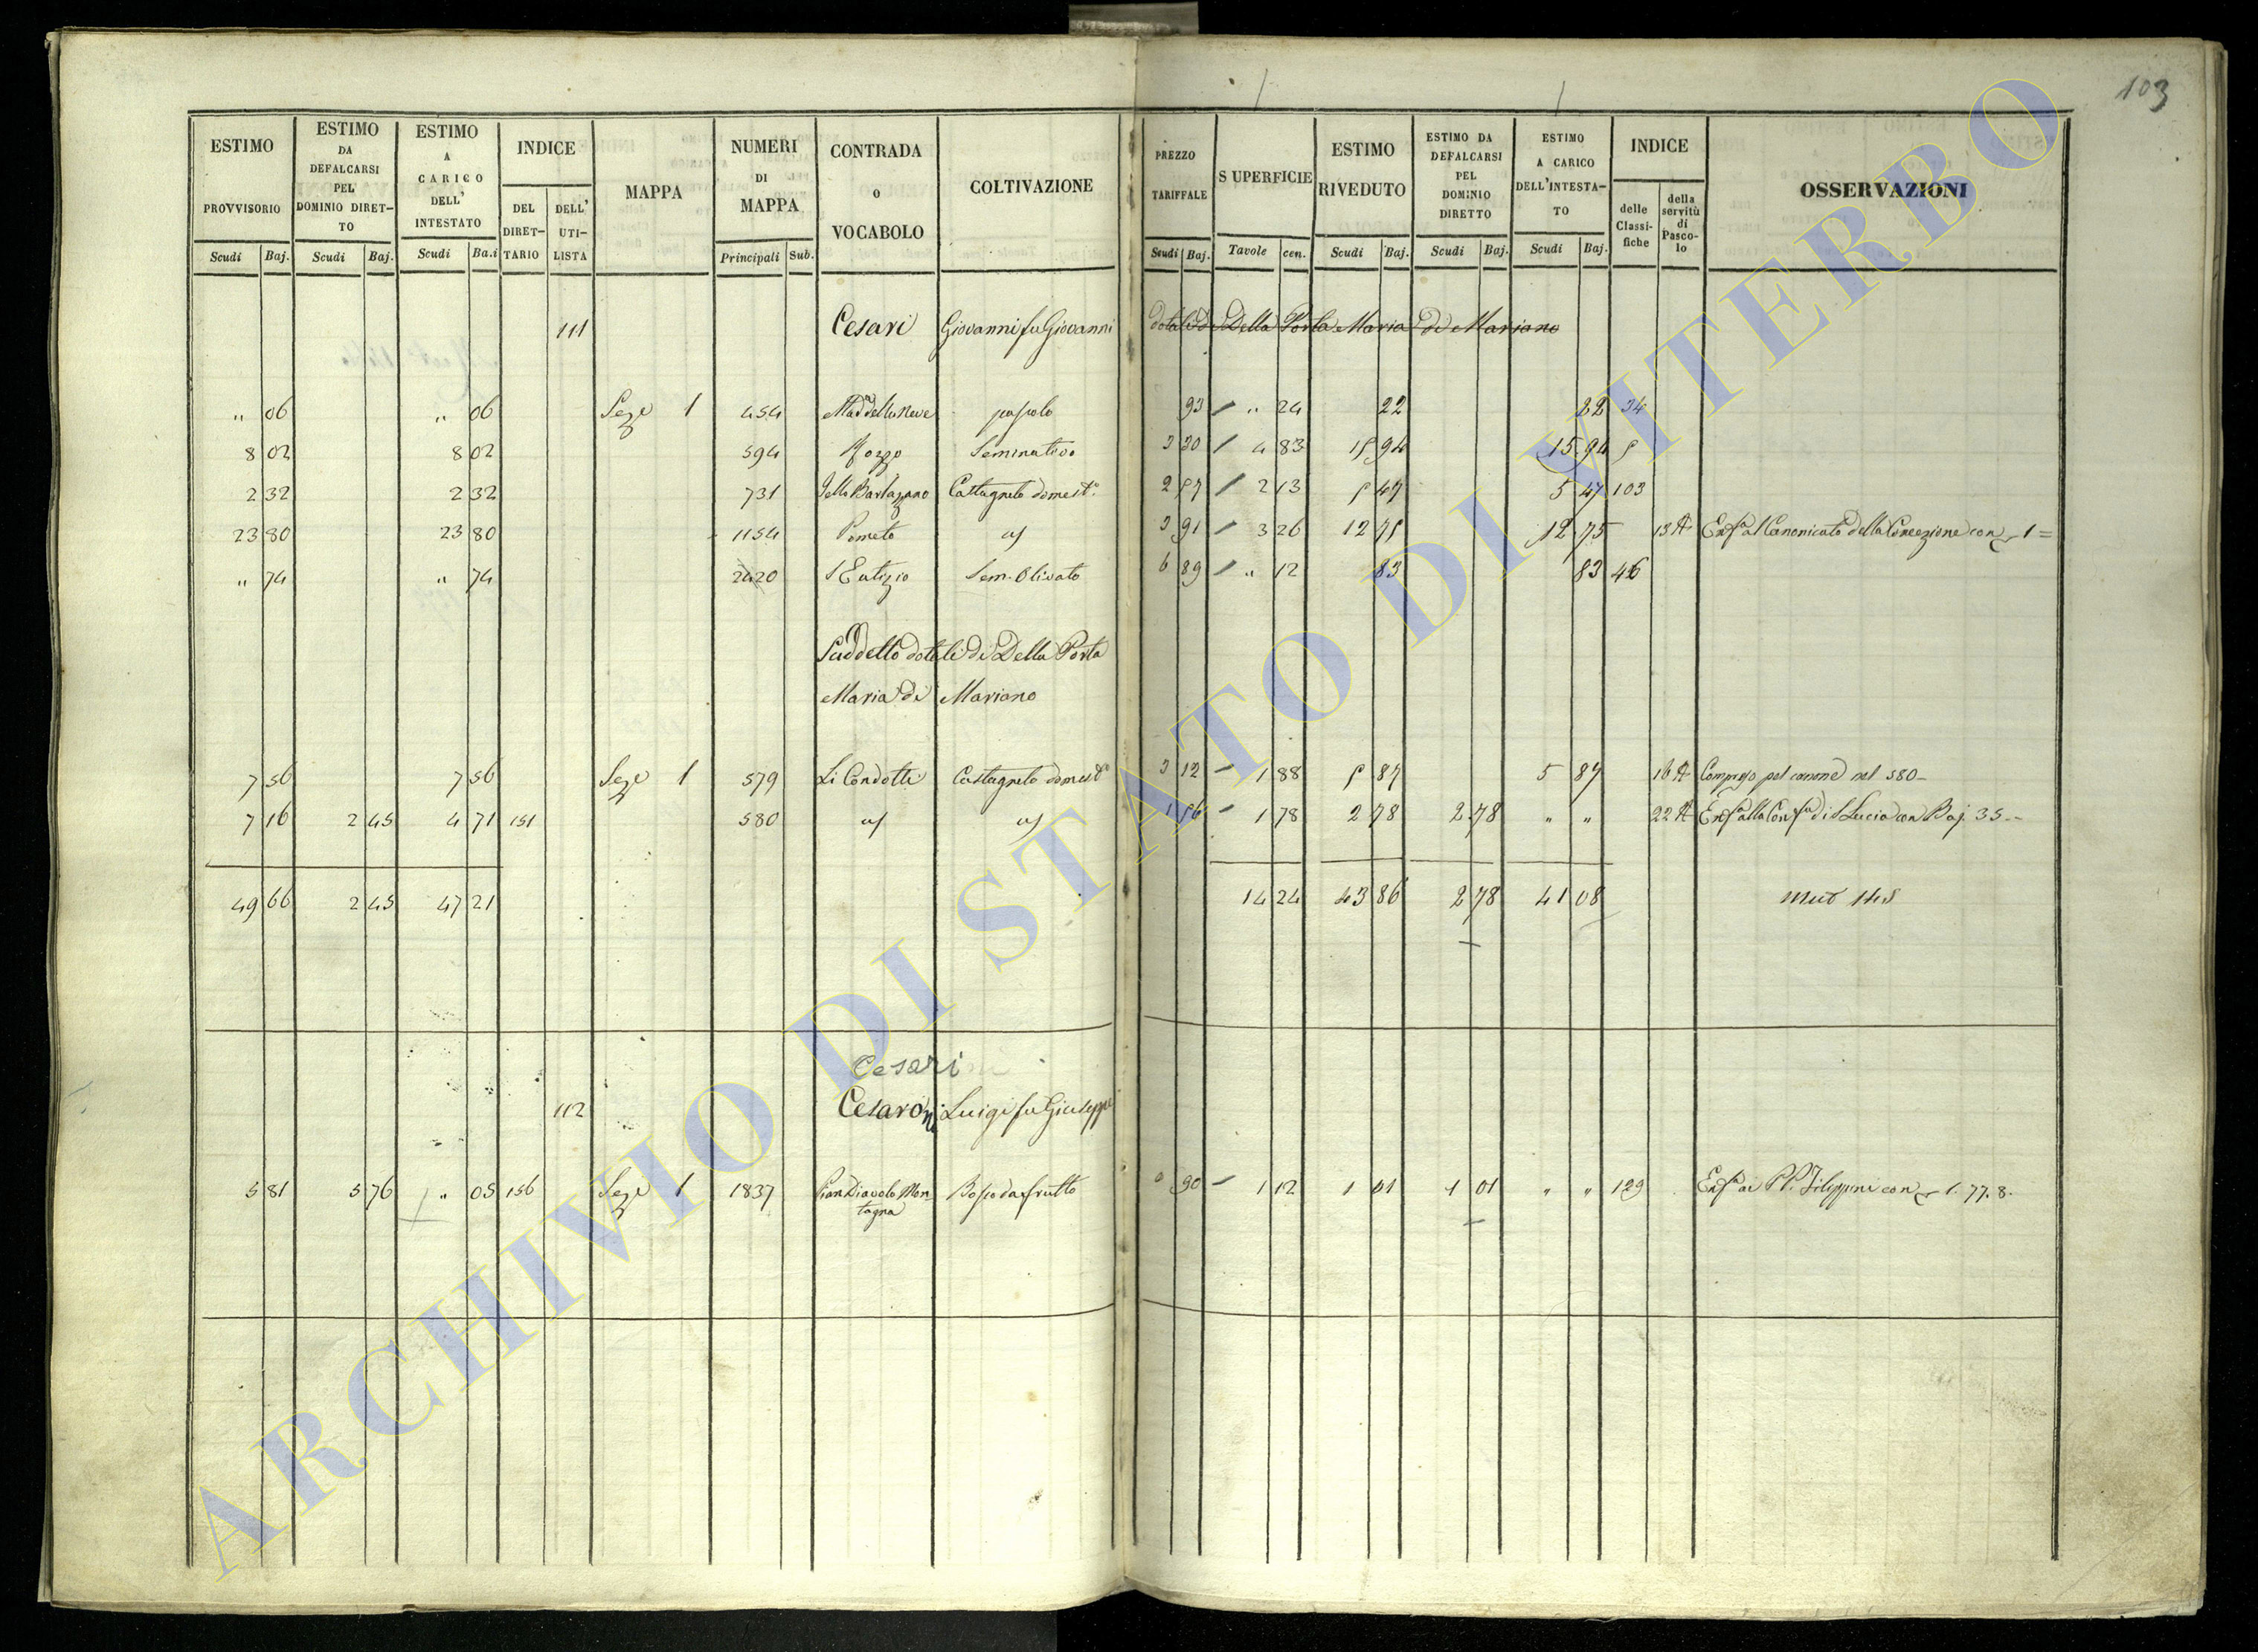 103
ESTIMO PROVVISORIO Scudi Baj.
ESTIMO DA DEFALCARSI PEL DOMINIO DIRET-TO Scudi Baj.
ESTIMO A CARICO DELL' INTESTATO Scudi Ba.i
INDICE DEL DIRET-TARIO DELL' UTI-LISTA
MAPPA
NUMERI DI MAPPA Principali Sub.
CONTRADA o VOCABOLO
COLTIVAZIONE
PREZZO TARIFFALE Scudi Baj.
SUPERFICIE Tavole cen.
ESTIMO RIVEDUTO Scudi Baj.
ESTIMO DA DEFALCARSI PEL DOMINIO DIRETTO Scudi Baj.
ESTIMO A CARICO DELL'INTESTA-TO Scudi Baj.
INDICE delle Classi-fiche della servitù di Pasco-lo
OSSERVAZIONI
111 Cesari Giovanni fu Giovanni dotali di Della Porta Maria di Mariano
" 06 " 06 Sez.e 1 454 Mad.a della Neve pascolo 93 " 24 22 22 34
8 02 8 02 594 Pozzo Seminativo 3 30 4 83 15 94 15 94 5
2 32 2 32 731 Castagneto domest.o 2 57 2 13 5 47 5 47 103
23 80 23 80 1154 Pometo 3 91 3 26 12 75 12 75 13 A Enf.a al Canonicato della Concezione con 1=
" 74 " 74 2420 S Eutizio Sem. Olivato 6 89 " 12 83 83 46
Suddetto dotali di Della Porta
Maria di Mariano
7 56 7 56 Sez.e 1 579 Li Condotti Castagneto domest.o 3 12 1 88 5 87 5 87 16 A Compreso pel canone nel 580
7 16 2 45 4 71 151 580 1 56 1 78 2 78 2 78 " " 22 A Enf.a alla Conf.a di S Lucia con Baj. 35
49 66 2 45 47 21 14 24 43 86 2 78 41 08
Cesari
112 Cesaroni Luigi fu Giuseppe
5 81 5 76 " 05 156 Sez.e 1 1837 Pian Diavolo Mon-tagna Bosco da frutto 90 1 12 1 01 1 01 " " 129 Enf.a ai PP. Filippini con 1. 77. 8.
ARCHIVIO DI STATO DI VITERBO